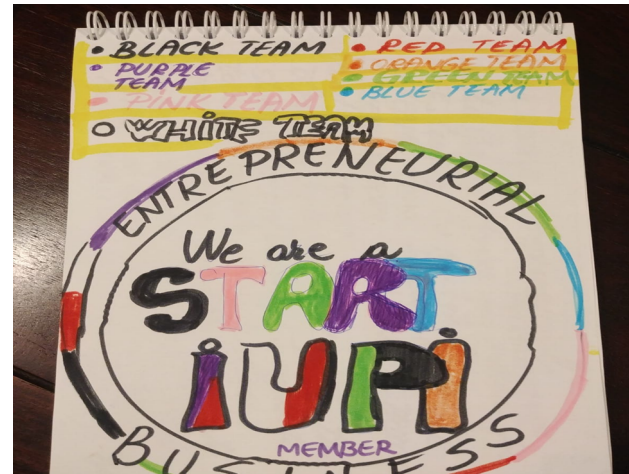 • BLACK TEAM
• PURPLE TEAM
• PINK TEAM
○ WHITE TEAM
• RED TEAM
• ORANGE TEAM
• GREEN TEAM
• BLUE TEAM
ENTREPRENEURIAL
We are a
START
iUPi
MEMBER
BUSINESS